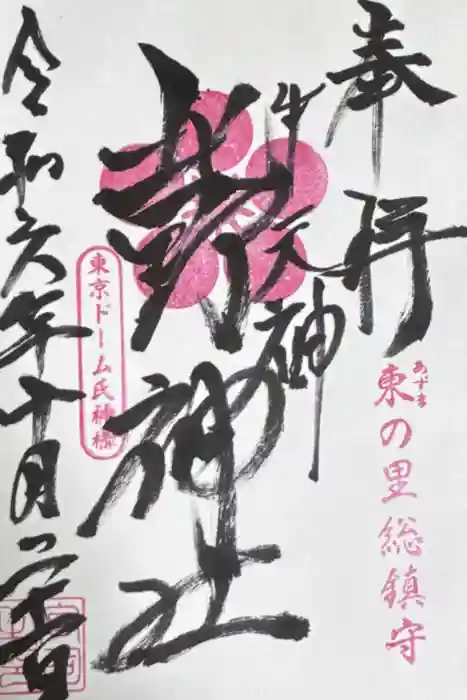 奉拝
あずま
東の里総鎮守
牛天神
北野神社
東京ドーム氏神様
令和六年十月二十二日